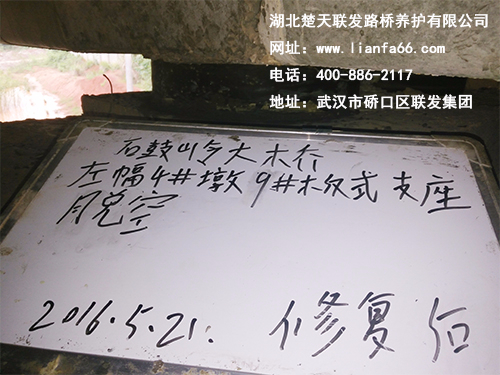 湖北楚天联发路桥养护有限公司
网址：www.lianfa66.com
电话：400-886-2117
地址：武汉市硚口区联发集团
石鼓岭大桥
左幅4#墩9#板式支座
脱空
2016.5.21.
修复后